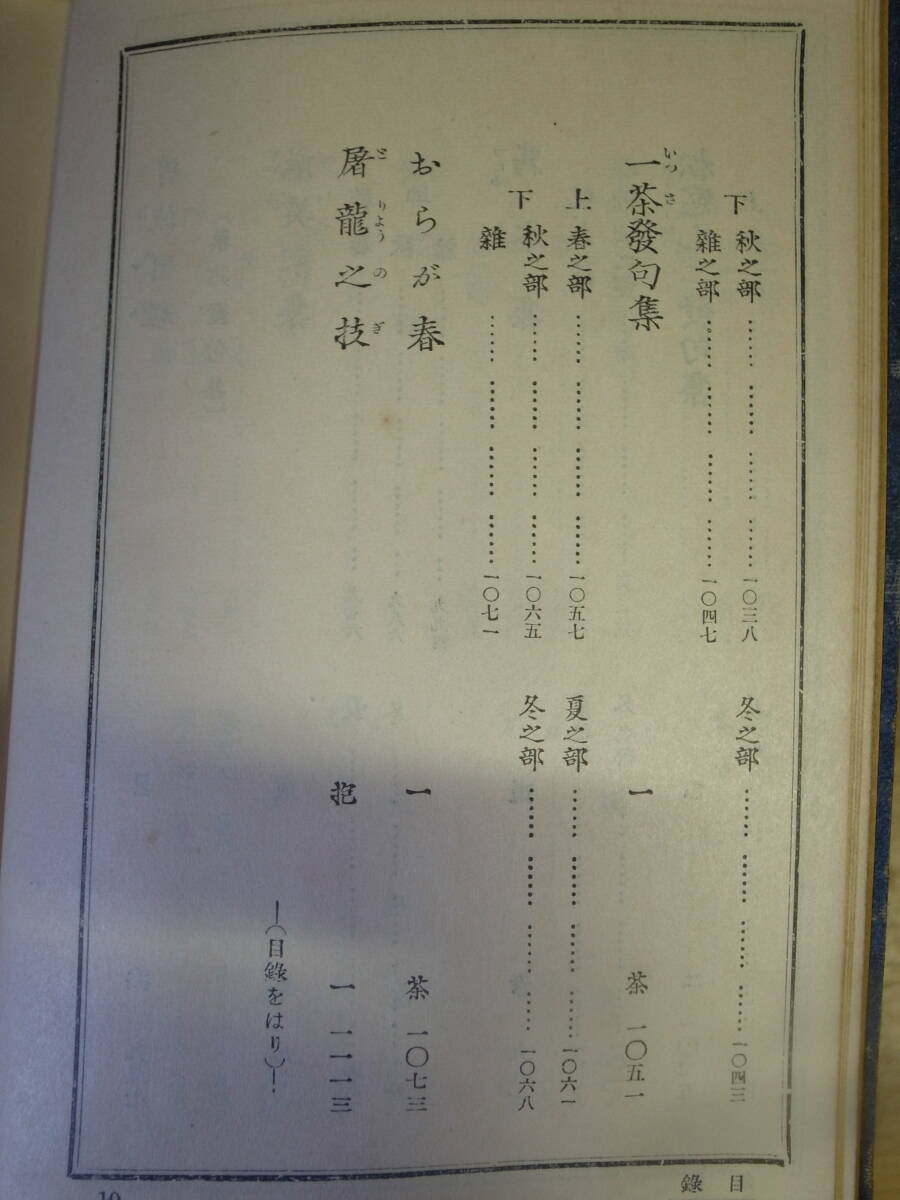 下 秋之部 …… …… …… …… 一〇三八 冬之部 …… …… …… …… 一〇四三
雜之部 …… …… …… …… 一〇四七
一茶發句集 一茶 一〇五一
いつさ
上 春之部 …… …… …… …… 一〇五七 夏之部 …… …… …… …… 一〇六一
下 秋之部 …… …… …… …… 一〇六五 冬之部 …… …… …… …… 一〇六八
雜 …… …… …… …… 一〇七一
おらが春 一茶 一〇七三
屠龍之技 抱一 一一一三
ごりようのぎ
―(目錄をはり)―
目錄
10